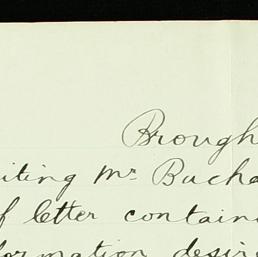 Brough
iting Mr Bucha
f letter contain
formation desire